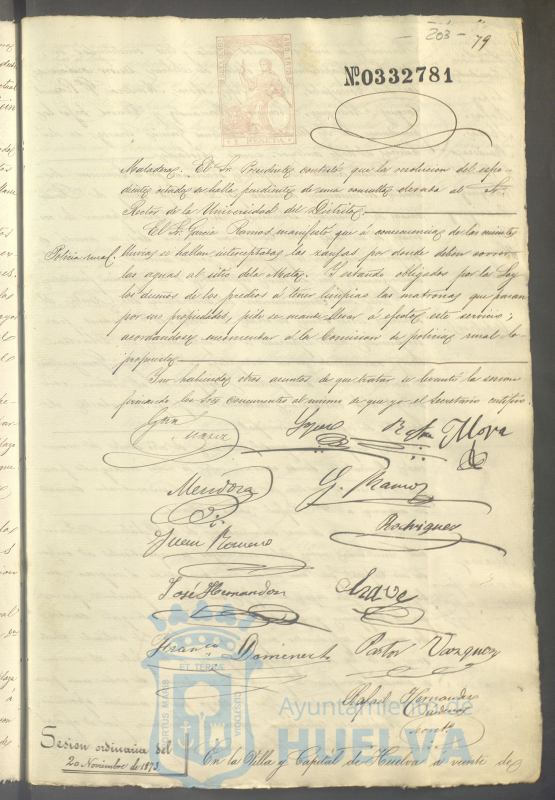 - 203 -
79
AÑO 1873
1 PESETA
Nº.0332781
Matadero. El Sr. Presidente contestó que la resolucion del espe-
diente citado se halla pendiente de una consulta elevada al Sr.
Rector de la Universidad del Distrito.
El Sr. Garcia Ramos, manifestó que á consecuencia de las
Policia rural. lluvias se hallan interceptadas las zanjas por donde deben correr
las aguas al sitio de la Mata. Y estando obligados por la Ley
los dueños de los predios á tener limpias las matronas que pasan
por sus propiedades, pide se mande llevar á efecto este servicio;
acordandose encomendar á la Comision de policia rural lo
propuesto
Sin haber otros asuntos de que tratar se levantó la sesion
firmando los Sres concurrentes al mismo de que yo el Secretario certifico.
Mora
Mendoza
G. Ramos
Juan Romero
Rodriguez
José Hernandez
Franco
Domenech
Pastor
Vazquez
Rafael Hernandez
ET TERRA
PORTUS MARIS
CUSTODIA
Ayuntamiento de
HUELVA
Sesion ordinaria del
20 Noviembre de 1873.
En la Villa y Capital de Huelva a veinte de